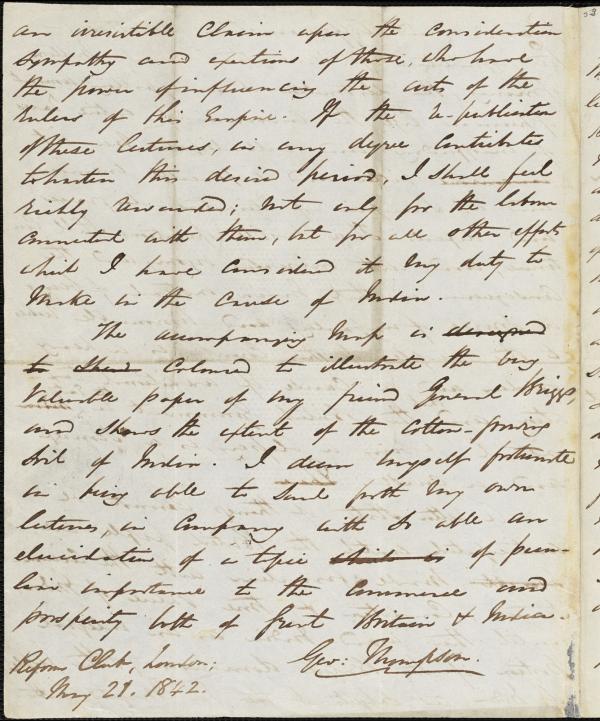 an irresistible claim upon the consideration
sympathy and exertions of those, who have
the power of influencing the acts of the
rulers of this Empire. If the re-publication
of these lectures, in any degree contributes
to hasten this desired period, I shall feel
richly rewarded; not only for the labour
connected with them, but for all other efforts
which I have considered it my duty to
make in the cause of India.
The accompanying map is designed
to shew Coloured to illustrate the very
valuable paper of my friend General Briggs,
and shows the extent of the cotton-growing
soil of India. I deem myself fortunate
in being able to send forth my own
lectures, in company with so able an
elucidation of a topic which is of pecu-
liar importance to the Commerce and
prosperity both of Great Britain & India.
Geo: Thompson.
Reform Club, London;
May 21. 1842.